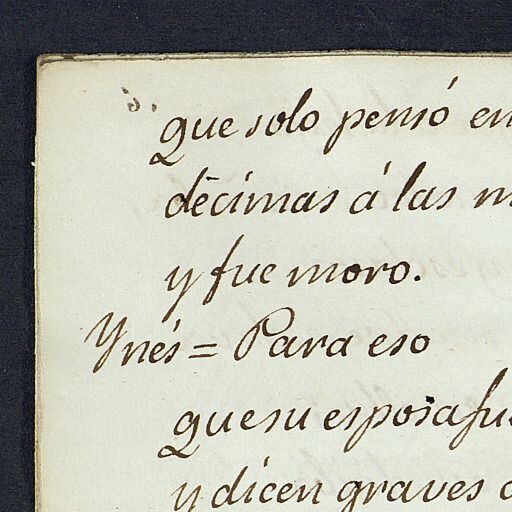 que solo pensó en
décimas á las m
y fue moro.
Ynés = Para eso
que su esposa fue
y dicen graves